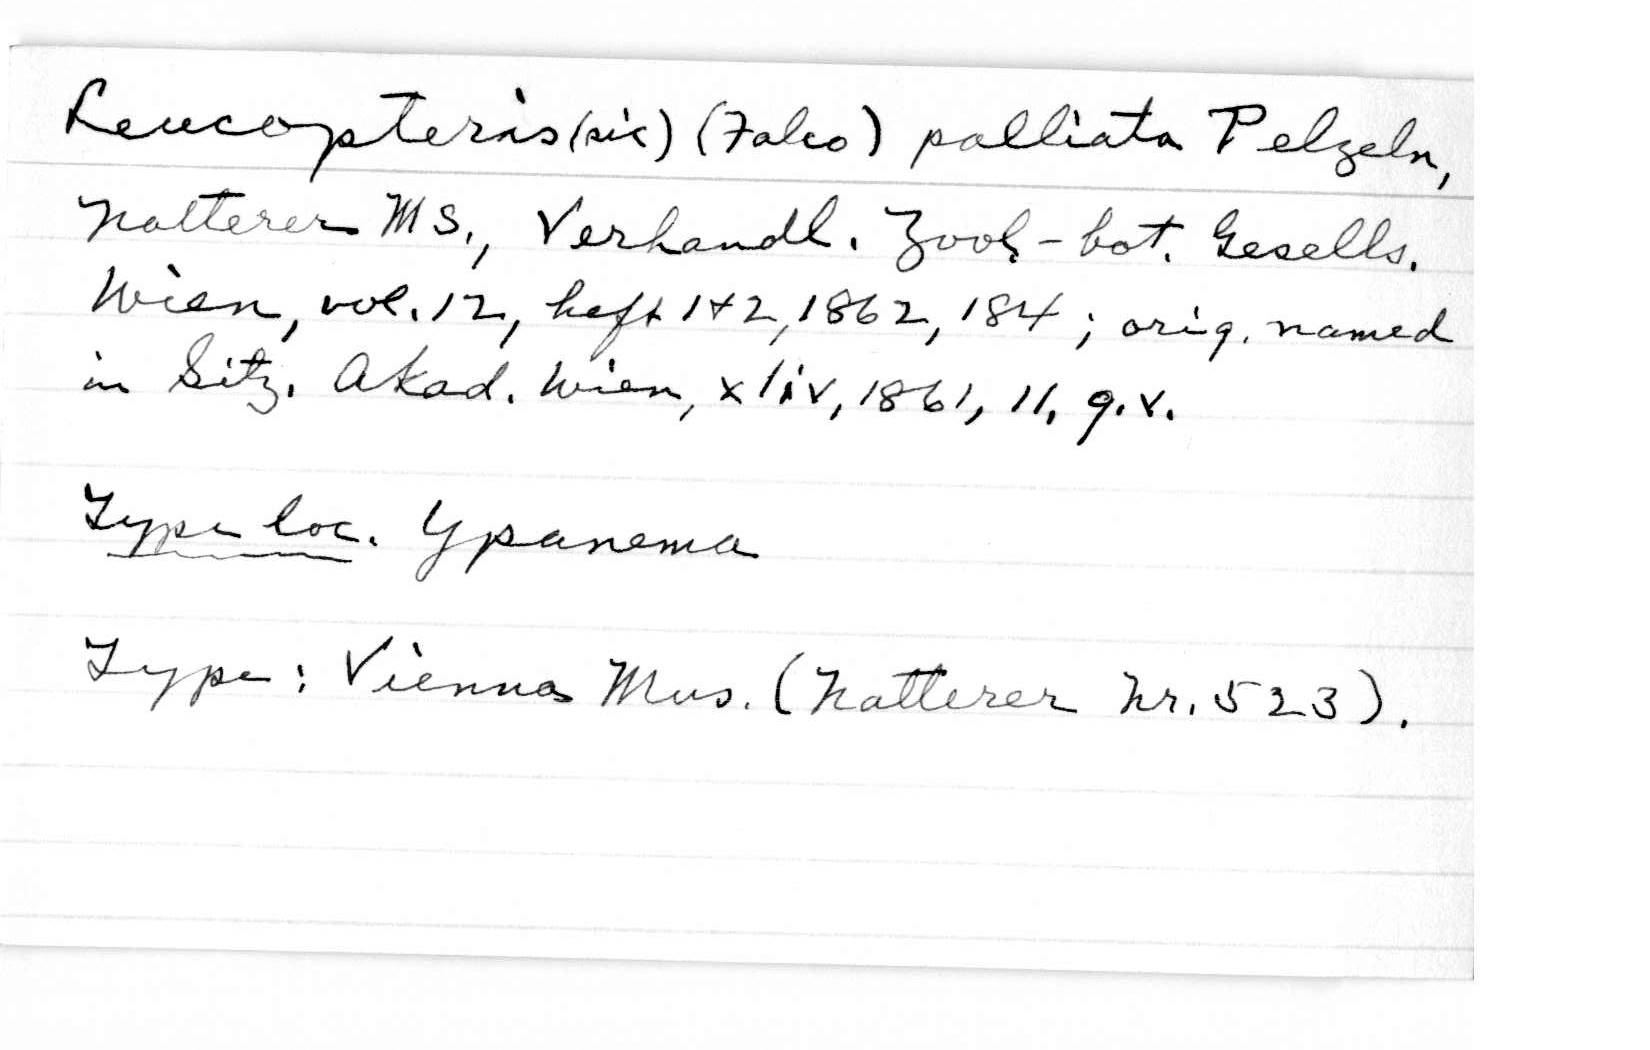 Leucopteris (sic) (Falco) palliata Pelzeln,
Natterer MS., Verhandl. Zool.-bot. Gesells.
Wien, vol. 12, heft 1+2, 1862, 184; orig. named
in Sitz. Akad. Wien, xliv, 1861, 11, q.v.
Type loc. Ypanema
Type: Vienna Mus. (Natterer Nr. 523).